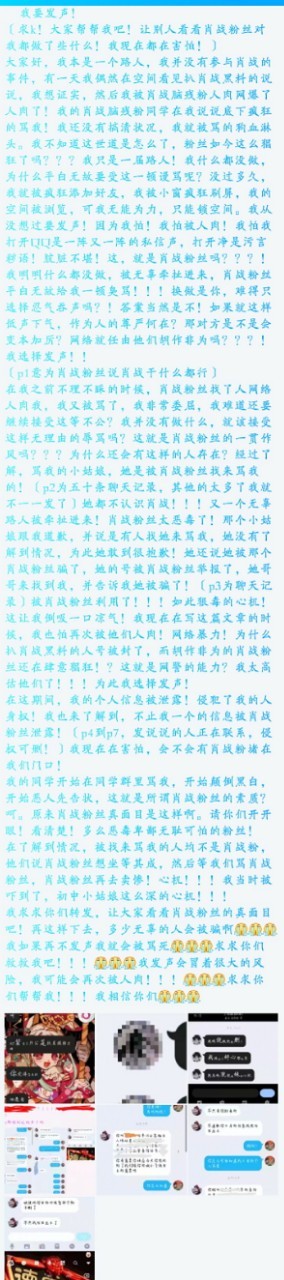 我要发声!
〔求k!大家帮帮我吧!让别人看看肖战粉丝对
我都做了些什么!我现在都在害怕!〕
大家好,我本是一个路人,我并没有参与肖战的
事件,有一天我偶然在空间看见扒肖战黑料的说
说,我想证实,然后我被肖战脑残粉人肉网爆了
人肉了!我的肖战脑残粉同学在我说说底下疯狂
的骂我!我还没有搞清状况,我就被骂的狗血淋
头。我不知道这世道是怎么了,粉丝如今这么猖
狂了吗???我只是一届路人!我什么都没做,
为什么平白无故要受这一顿谩骂呢?没过多久,
我就被疯狂添加好友,我被小窗疯狂刷屏,我的
空间被浏览,可我无能为力,只能锁空间。我从
没想过要发声!因为我怕!我怕被人肉!我怕我
打开QQ是一阵又一阵的私信声,打开净是污言
秽语!肮脏不堪!这,就是肖战粉丝吗????!
我明明什么都没做,被无辜牵扯进来,肖战粉丝
平白无故给我一顿臭骂!!!换做是你,难得只
选择忍气吞声吗?!答案当然是不!如果就这样
低声下气,作为人的尊严何在?那对方是不是会
更本加厉?网络就任由他们胡作非为吗???!
我选择发声!!
〔p1意为肖战粉丝说肖战干什么都行〕
在我之前不理不睬的时候,肖战粉丝找了人网络
人肉我,我又被骂了,我非常委屈,我难道还要
继续接受这等不公?我并没有做什么,就该接受
这样无理由的辱骂吗?这就是肖战粉丝的一贯作
风吗???为什么还会有这样的人存在?经过了
解,骂我的小姑娘,她是被肖战粉丝找来骂我
的!〔p2为五十条聊天记录,其他的太多了我就
不一一发了〕她都不认识肖战!!!又一个无辜
路人被牵扯进来!肖战粉丝太恶毒了!那个小姑
娘跟我道歉,并说是有人找她来骂我,她没有了
解到情况,为此她感到很抱歉!她还说她被那个
肖战粉丝骗了,她的号被肖战粉丝举报了,她哥
哥来找到我,并告诉我她被骗了!〔p3为聊天记
录〕被肖战粉丝利用了!!!如此狠毒的心机!
这让我倒吸一口凉气!我现在在写这篇文章的时
候,我也怕再次被他们人肉!网络暴力!为什么
扒肖战黑料的人号被封了,而胡作非为的肖战粉
丝还在肆意猖狂!?这就是网警的能力?我太高
估他们了!!!为此我选择发声!
在这期间,我的个人信息被泄露!侵犯了我的人
身权!我也来了解到,不止我一个的信息被肖战
粉丝泄露!〔p4到p7,发说说的人正在联系,侵
权可删!〕我现在在害怕,会不会有肖战粉堵在
我们门口!
我的同学开始在同学群里骂我,开始颠倒黑白,
开始恶人先告状,这就是所谓肖战粉丝的素质?
呵。原来肖战粉丝真面目是这样啊。请你们开开
眼!看清楚!多么恶毒卑鄙无耻可怕的粉丝!
在了解到情况,被找来骂我的人均不是肖战粉,
他们说肖战粉丝想坐等其成,然后等我们骂肖战
粉丝,肖战粉丝再去卖惨!心机!!!我当时被
吓到了,初中小姑娘这么深的心机!!!
我求求你们转发,让大家看看肖战粉丝的真面目
吧!再这样下去,多少无辜的人会被骗啊
我如果再不发声我就会被骂死求求你们
救救我吧!!!我发声会冒着很大的风
险,我可能会再次被人肉!!!求求你
们帮帮我!!!我相信你们